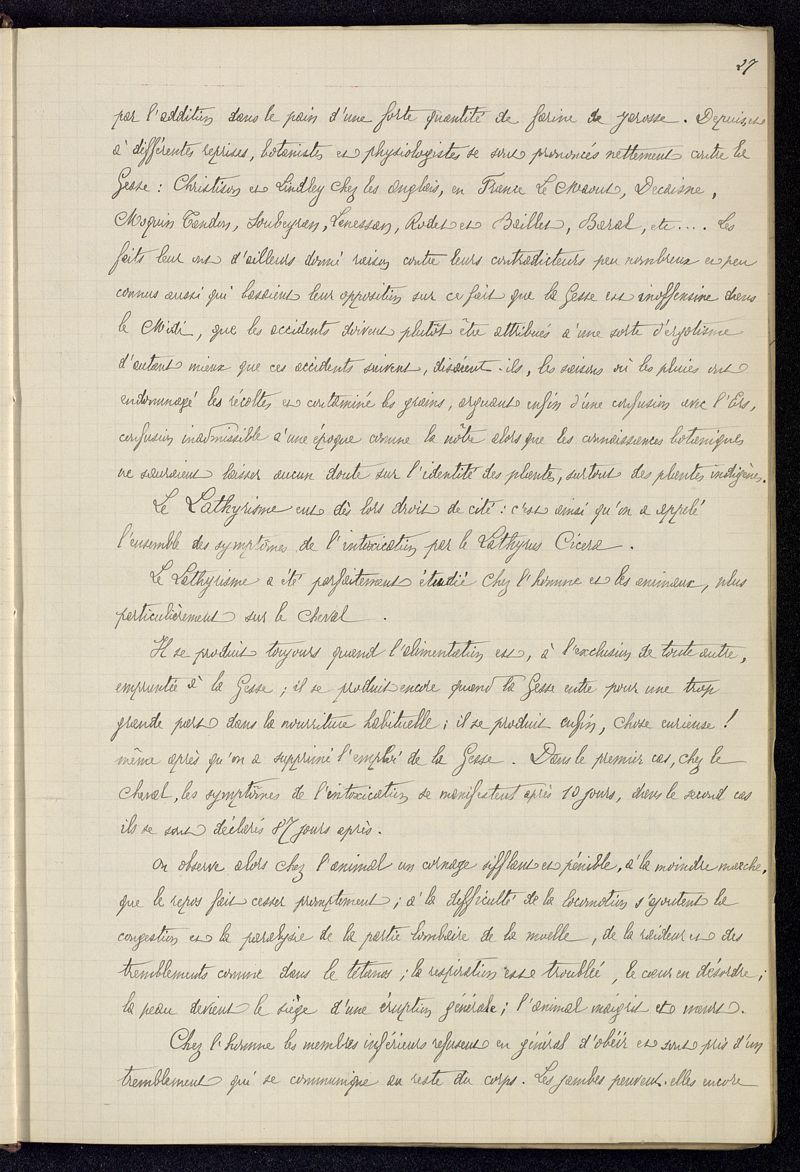 27
par l'addition dans le pain d'une forte quantité de farine de jarosse. Depuis et
à différentes reprises, botanistes et physiologistes se sont prononcés nettement contre la
Gesse : Christison et Lindley chez les anglais, en France Le Maout, Decaisne,
Moquin Tandon, Soubeyran, Lanessan, Rodet et Baillet, Baral, etc.... Les
faits leur ont d'ailleurs donné raison contre leurs contradicteurs peu nombreux et peu
connus aussi qui basaient leur opposition sur ce fait que la Gesse est inoffensive dans
le Midi, que les accidents doivent plutôt être attribués à une sorte d'ergotisme
d'autant mieux que ces accidents suivent, disaient-ils, les saisons où les pluies ont
endommagé les récoltes et contaminé les grains, arguant enfin d'une confusion avec l'Ers,
confusion inadmissible à une époque comme la nôtre alors que les connaissances botaniques
ne sauraient laisser aucun doute sur l'identité des plantes, surtout des plantes indigènes.
Le Lathyrisme eut dès lors droit de cité : c'est ainsi qu'on a appelé
l'ensemble des symptômes de l'intoxication par le Lathyrus Cicera .
Le Lathyrisme a été parfaitement étudié chez l'homme et les animaux, plus
particulièrement sur le cheval .
Il se produit toujours quand l'alimentation est, à l'exclusion de toute autre,
empruntée à la Gesse ; il se produit encore quand la Gesse entre pour une trop
grande part dans la nourriture habituelle ; il se produit enfin, chose curieuse !
même après qu'on a supprimé l'emploi de la Gesse . Dans le premier cas, chez le
cheval, les symptômes de l'intoxication se manifestent après 10 jours, dans le second cas
ils se sont déclarés 87 jours après.
On observe alors chez l'animal un cornage sifflant et pénible, à la moindre marche,
que le repos fait cesser promptement ; à la difficulté de la locomotion s'ajoutent la
congestion et la paralysie de la partie lombaire de la moelle, de la raideur et des
tremblements comme dans le tétanos ; la respiration est troublée, le cœur en désordre ;
la peau devient le siège d'une éruption générale ; l'animal maigrit et meurt.
Chez l'homme les membres inférieurs refusent en général d'obéir et sont pris d'un
tremblement qui se communique au reste du corps. Les jambes peuvent-elles encore